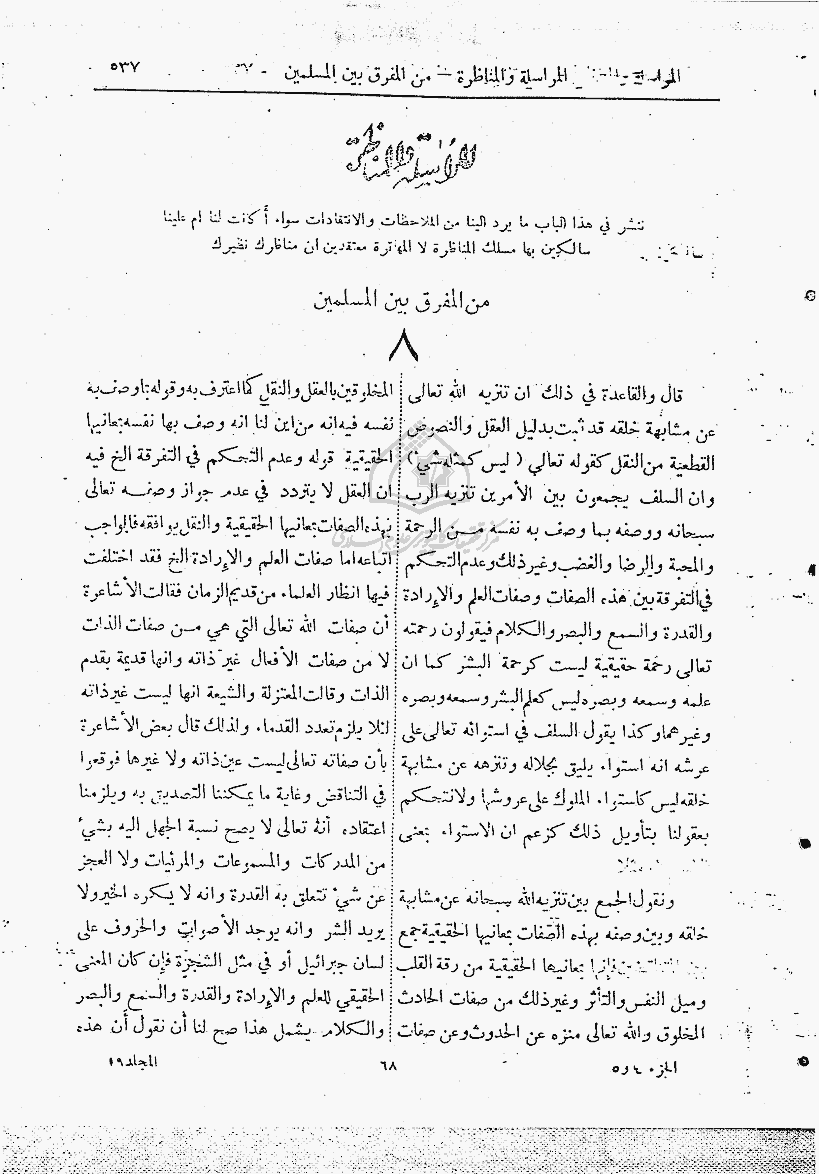 المراسلة والمناظرة – من المفرق بين المسلمين
٥٣٧
المراسلة والمناظرة
ننشر في هذا الباب ما يرد الينا من الملاحظات والانتقادات سواء أكانت لنا ام علينا
سالكين بها مسلك المناظرة لا المهاترة معتقدين ان مناظرك نظيرك
من المفرق بين المسلمين
٨
قال والقاعدة في ذلك ان تنزيه الله تعالى
عن مشابهة خلقه قد ثبت بدليل العقل والنصوص
القطعية من النقل كقوله تعالى ( ليس كمثله شيء )
وان السلف يجمعون بين الأمرين تنزيه الرب
سبحانه ووصفه بما وصف به نفسه من الرحمة
والمحبة والرضا والغضب وغير ذلك وعدم التحكم
في التفرقة بين هذه الصفات وصفات العلم والإرادة
والقدرة والسمع والبصر والكلام فيقولون رحمته
تعالى رحمة حقيقية ليست كرحمة البشر كما ان
علمه وسمعه وبصره ليس كعلم البشر وسمعه وبصره
وغيرهما وكذا يقول السلف في استوائه تعالى على
عرشه انه استواء يليق بجلاله وتنزهه عن مشابهة
خلقه ليس كاستواء الملوك على عروشها ولا نتحكم
بعقولنا بتأويل ذلك كزعم ان الاستواء بمعنى
ونقول الجمع بين تنزيه الله سبحانه عن مشابهة
خلقه وبين وصفه بهذه الصفات بمعانيها الحقيقية جمع
بين فإنها بمعانيها الحقيقية من رقة القلب
وميل النفس والتأثر وغير ذلك من صفات الحادث
المخلوق والله تعالى منزه عن الحدوث وعن صفات
المخلوقين بالعقل والنقل كما اعترف به وقوله بما وصف به
نفسه فيه انه من اين لنا انه وصف بها نفسه بمعانيها
الحقيقية قوله وعدم التحكم في التفرقة الخ فيه
ان العقل لا يتردد في عدم جواز وصفه تعالى
بهذه الصفات بمعانيها الحقيقية والنقل يوافقه فالواجب
اتباعه اما صفات العلم والإرادة الخ فقد اختلفت
فيها انظار العلماء من قديم الزمان فقالت الأشاعرة
أن صفات الله تعالى التي هي من صفات الذات
لا من صفات الأفعال غير ذاته وانها قديمة بقدم
الذات وقالت المعتزلة والشيعة انها ليست غير ذاته
لئلا يلزم تعدد القدماء ولذلك قال بعض الأشاعرة
بأن صفاته تعالى ليست عين ذاته ولا غيرها فوقعوا
في التناقض وغاية ما يمكننا التصديق به ويلزمنا
اعتقاده أنه تعالى لا يصح نسبة الجهل اليه بشيء
من المدركات والمسموعات والمرئيات ولا العجز
عن شيء تتعلق به القدرة وانه لا يكره الخير ولا
يريد الشر وانه يوجد الأصوات والحروف على
لسان جبرائيل أو في مثل الشجرة فإن كان المعنى
الحقيقي للعلم والإرادة والقدرة والسمع والبصر
والكلام يشمل هذا صح لنا أن نقول أن هذه
الجزء ٤ و٥
٦٨
المجلد ١٩